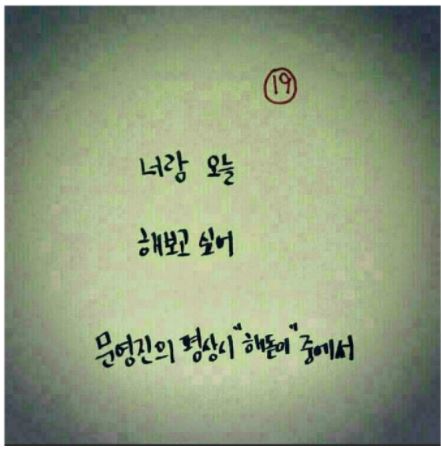 19
너랑 오늘
해보고 싶어
문영진의 평상시 "해돋이" 중에서